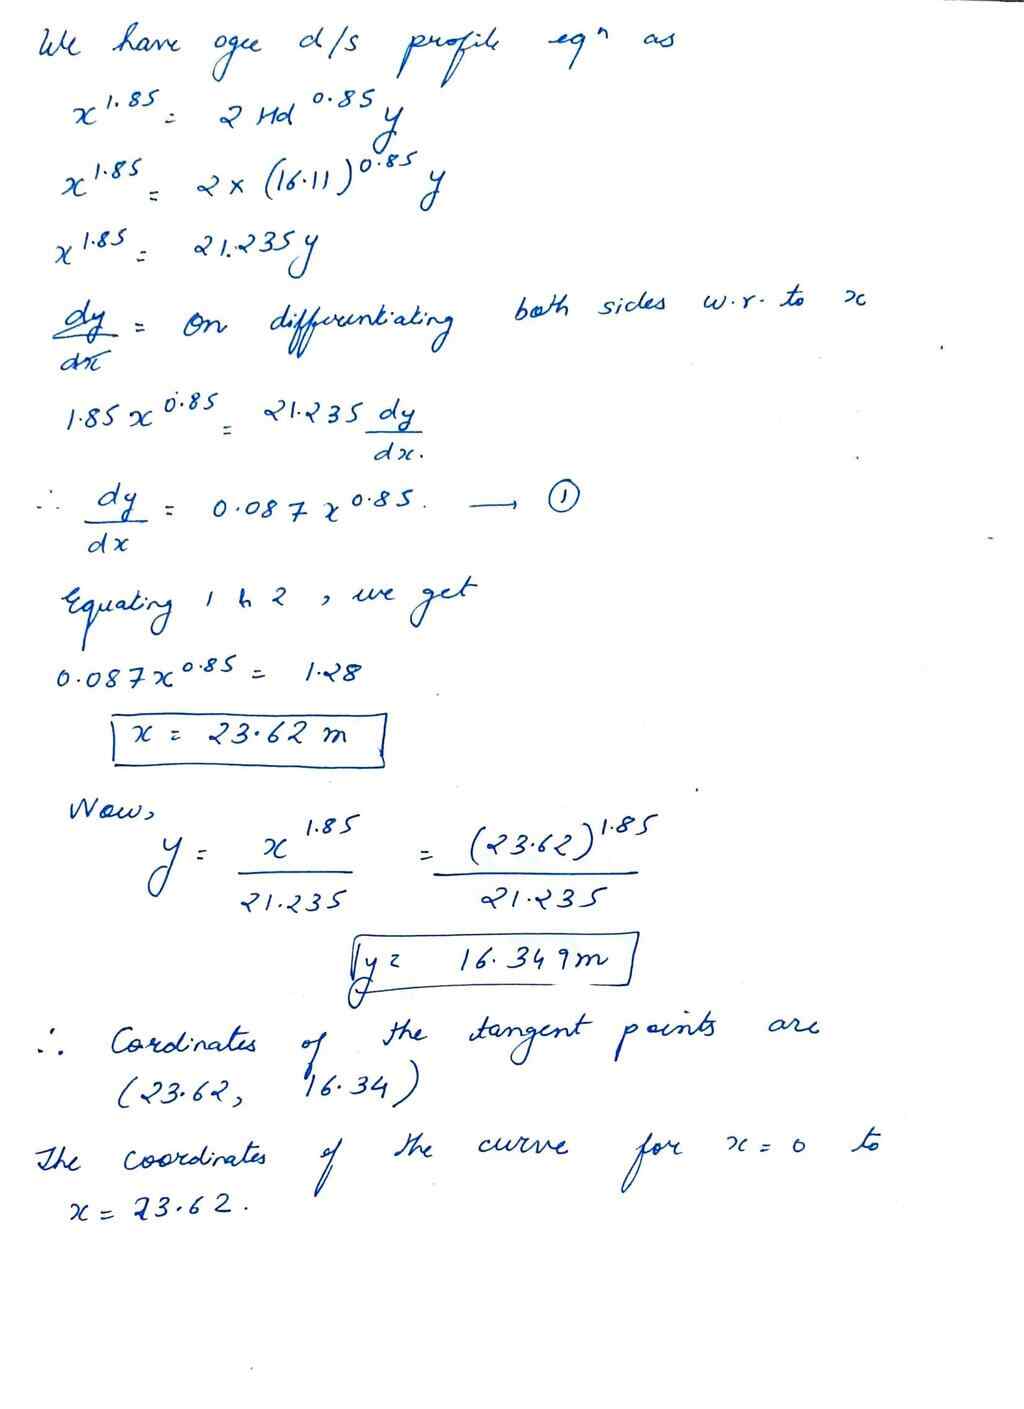 We have ogee d/s profile eqn as
x^1.85 = 2 Hd^0.85 y
x^1.85 = 2 x (16.11)^0.85 y
x^1.85 = 21.235 y
dy/dx = On differentiating both sides w.r. to x
1.85 x^0.85 = 21.235 dy/dx.
∴ dy/dx = 0.087 x^0.85. → ①
Equating 1 & 2, we get
0.087x^0.85 = 1.28
x = 23.62 m
Now,
y = x^1.85/21.235 = (23.62)^1.85/21.235
y = 16.349m
∴ Cordinates of the tangent points are
(23.62, 16.34)
The coordinates of the curve for x = 0 to
x = 23.62.